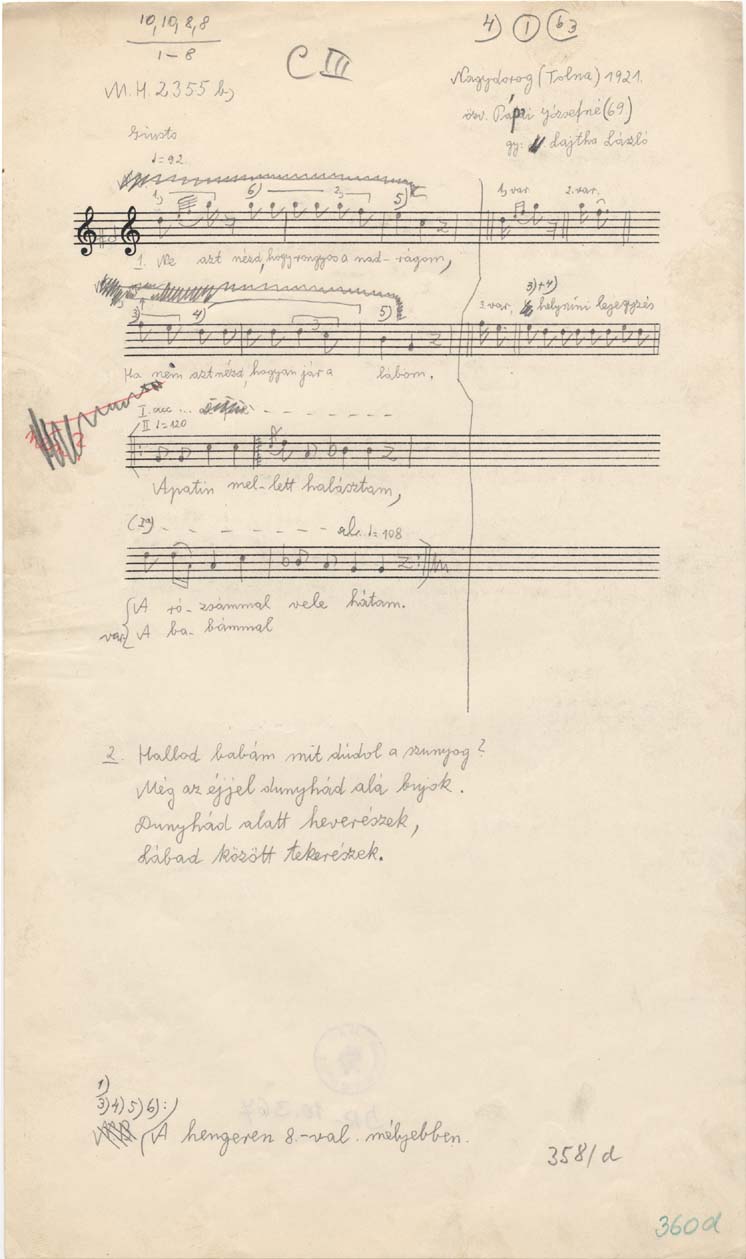 10, 10, 8, 8
1–8
4) 1 b3
C III
M. H. 2355 b,
Nagydorog (Tolna) 1921.
özv. Pápai Józsefné (69)
gy: Lajtha László
Giusto
♩= 92
1) 6) 2) 5)
1) var 2. var.
1. Ne azt nézd, hogy rongyos a nad-rágom,
3) 4) 3 5)
3. var. 3)+4) helyszíni lejegyzés
Ha nem azt nézd, hogyan jár a lábom.
I. acc ...
II ♩= 120
Apatin mel-lett halásztam,
♩= 108
A ró-zsámmal vele hátam.
var A ba-bámmal
2. Hallod babám mit dúdol a szunyog?
Még az éjjel dunyhád alá bujok.
Dunyhád alatt heverészek,
Lábad között tekerészek.
1)
3) 4) 5) 6) :
A hengeren 8.-val mélyebben.
358/d
360d